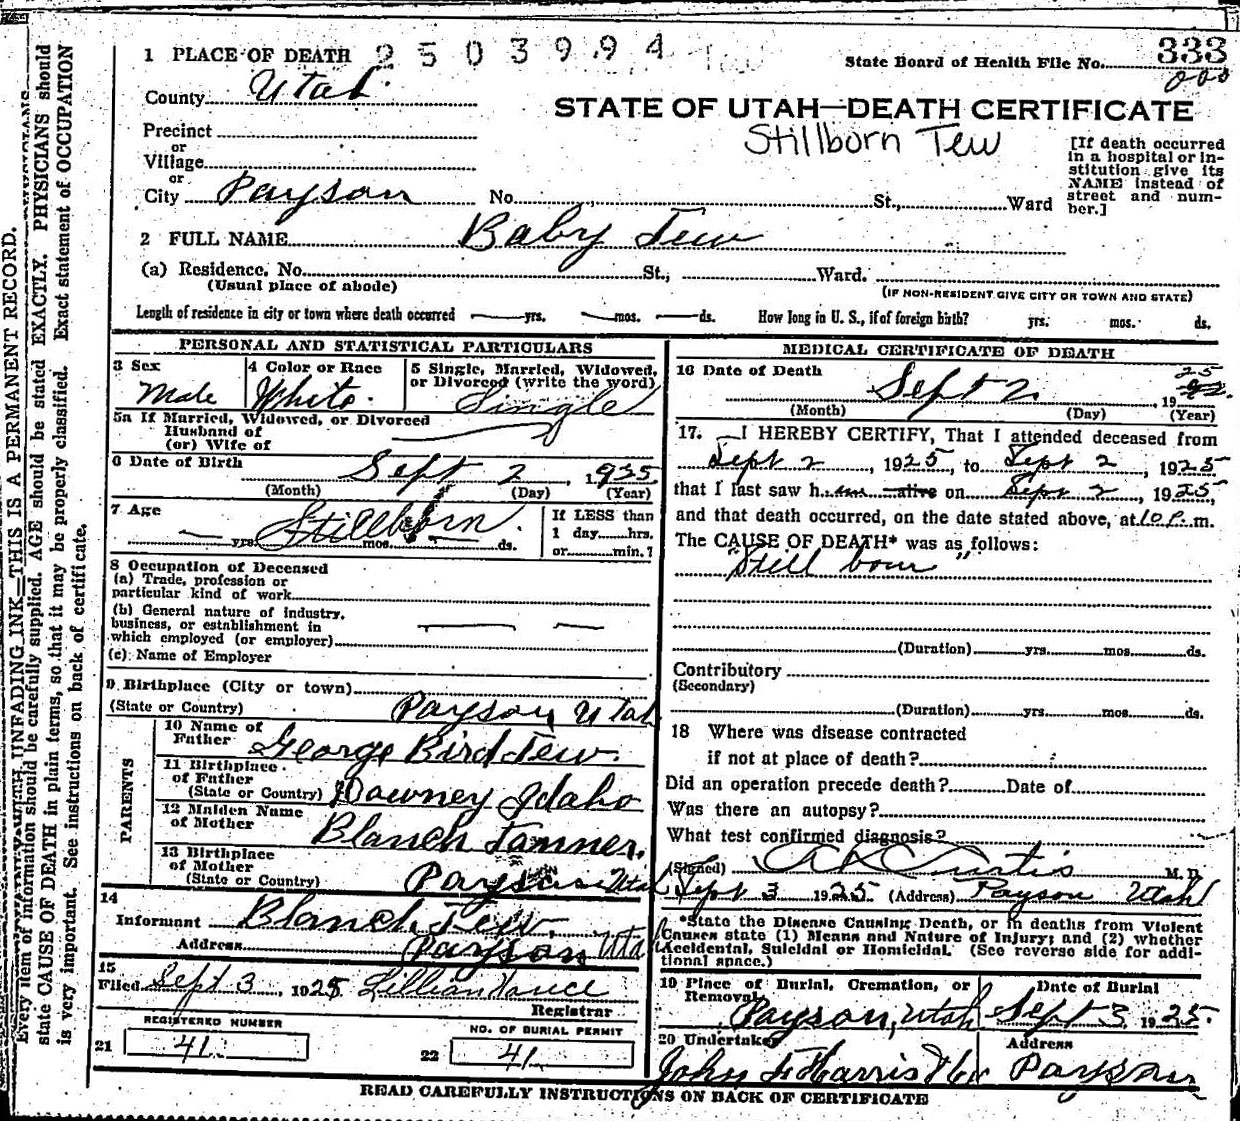 1 PLACE OF DEATH 2503994
State Board of Health File No. 333
County Utah
STATE OF UTAH—DEATH CERTIFICATE
Stillborn Tew
Precinct
or
Village
or
City Payson No. St., Ward
[If death occurred
in a hospital or in-
stitution give its
NAME instead of
street and num-
ber.]
2 FULL NAME Baby Tew
(a) Residence, No. St., Ward.
(Usual place of abode)
(IF NON-RESIDENT GIVE CITY OR TOWN AND STATE)
Length of residence in city or town where death occurred yrs. mos. ds. How long in U. S., if of foreign birth? yrs. mos. ds.
PERSONAL AND STATISTICAL PARTICULARS
3 Sex Male
4 Color or Race White.
5 Single, Married, Widowed,
or Divorced (write the word)
Single
5a If Married, Widowed, or Divorced
Husband of
(or) Wife of
6 Date of Birth Sept 2, 1925
(Month) (Day) (Year)
7 Age Stillborn.
yrs. mos. ds.
If LESS than
1 day......hrs.
or......min.?
8 Occupation of Deceased
(a) Trade, profession or
particular kind of work
(b) General nature of industry,
business, or establishment in
which employed (or employer)
(c) Name of Employer
9 Birthplace (City or town)
(State or Country) Payson Utah
PARENTS
10 Name of
Father George Bird Tew.
11 Birthplace
of Father
(State or Country) Downey Idaho
12 Maiden Name
of Mother Blanch Tanner.
13 Birthplace
of Mother
(State or Country) Payson Utah
14
Informant Blanch Tew.
Address Payson Utah
15
Filed Sept 3, 1925 Lillian Vance
Registrar
REGISTERED NUMBER
21 41
NO. OF BURIAL PERMIT
22 41
MEDICAL CERTIFICATE OF DEATH
16 Date of Death Sept 2. 1925
(Month) (Day) (Year)
17. I HEREBY CERTIFY, That I attended deceased from
Sept 2, 1925, to Sept 2, 1925
that I last saw h alive on Sept 2, 1925,
and that death occurred, on the date stated above, at 10 P. m.
The CAUSE OF DEATH* was as follows:
"Still born"
(Duration) yrs. mos. ds.
Contributory
(Secondary)
(Duration) yrs. mos. ds.
18 Where was disease contracted
if not at place of death?
Did an operation precede death? Date of
Was there an autopsy?
What test confirmed diagnosis?
(Signed) Curtis M. D.
Sept 3 1925 (Address) Payson Utah
*State the Disease Causing Death, or in deaths from Violent
Causes state (1) Means and Nature of Injury; and (2) whether
Accidental, Suicidal or Homicidal. (See reverse side for addi-
tional space.)
19 Place of Burial, Cremation, or
Removal Payson, Utah
Date of Burial
Sept 3 1925.
20 Undertaker
John F Harris & Co
Address
Payson
READ CAREFULLY INSTRUCTIONS ON BACK OF CERTIFICATE
UNFADING INK—THIS IS A PERMANENT RECORD.
Every item of information should be carefully supplied. AGE should be stated EXACTLY. PHYSICIANS should
state CAUSE OF DEATH in plain terms, so that it may be properly classified. Exact statement of OCCUPATION
is very important. See instructions on back of certificate.